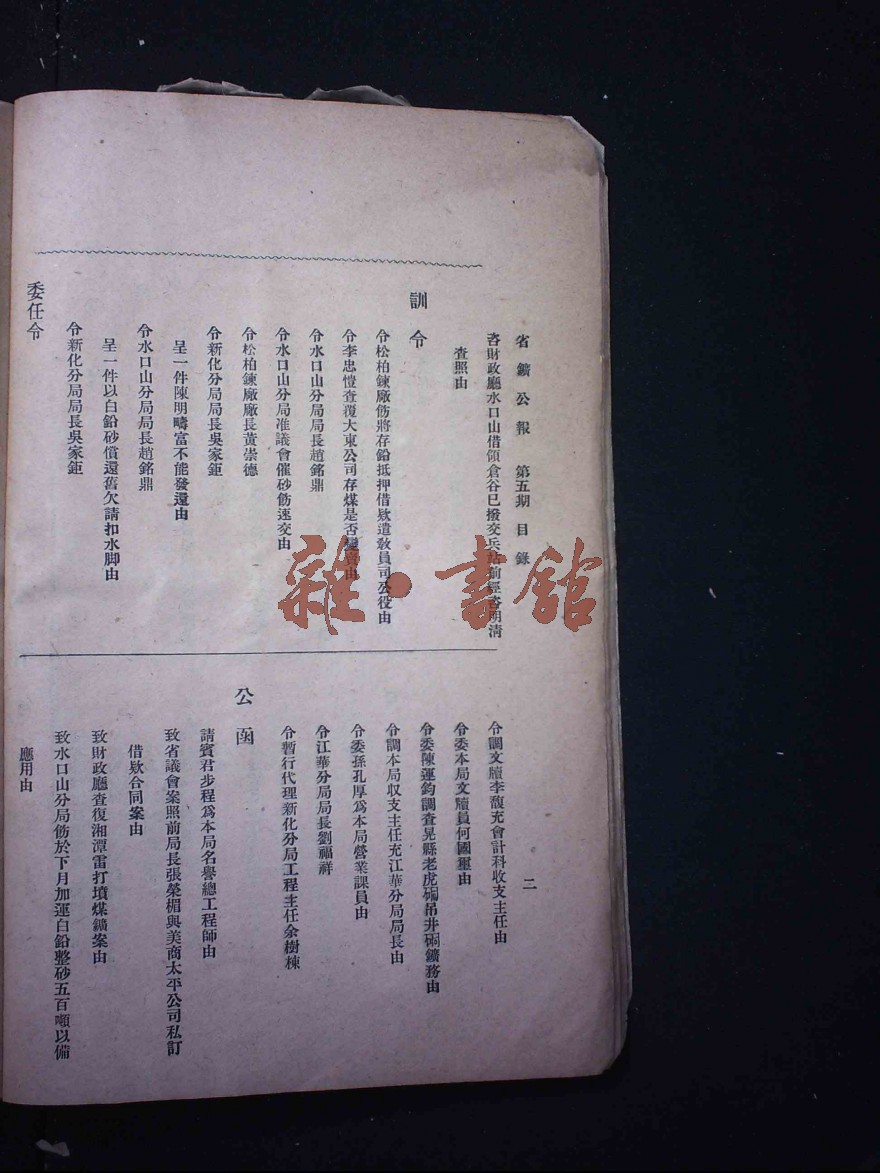 省鑛公報 第五期 目錄 二
咨財政廳水口山借領倉谷已撥交兵站前經咨明清
查照由
訓令
令松柏鍊廠飭將存鉛抵押借欵遣敎員司公役由
令李忠愷查覆大東公司存煤是否變賣由
令水口山分局局長趙銘鼎
令水口山分局准議會催砂飭速交由
令松柏鍊廠廠長黃崇德
令新化分局局長吳家鉅
呈一件陳明疇富不能發還由
令水口山分局局長趙銘鼎
呈一件以白鉛砂償還舊欠請扣水脚由
令新化分局局長吳家鉅
委任令
令調文牘李馥充會計科收支主任由
令委本局文牘員何國璽由
令委陳運鈞調查晃縣老虎硐吊井硐鑛務由
令調本局收支主任充江華分局局長由
令委孫孔厚爲本局營業課員由
令江華分局局長劉福祥
令暫行代理新化分局工程主任余樹棟
公函
請賓君步程爲本局名譽總工程師由
致省議會案照前局長張榮楣與美商太平公司私訂
借欵合同案由
致財政廳查復湘潭雷打墳煤鑛案由
致水口山分局飭於下月加運白鉛整砂五百噸以備
應用由
雜·書館